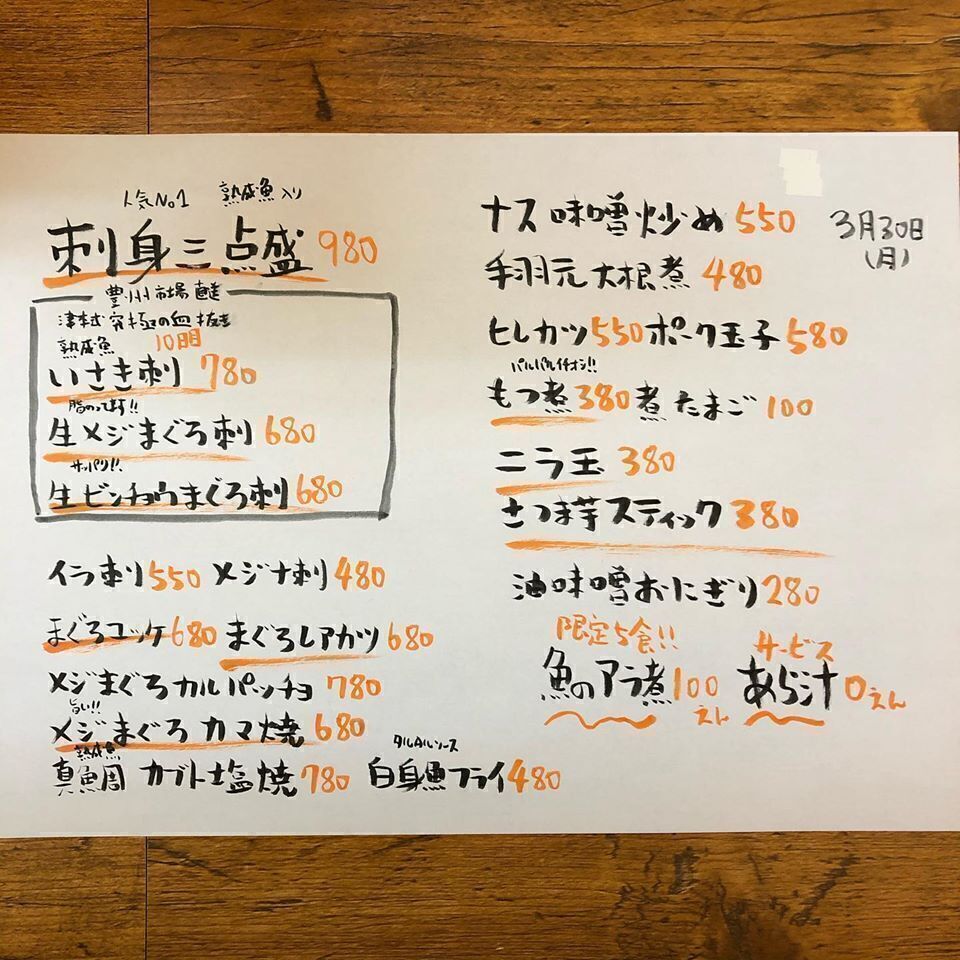 人気No1 熟成魚入り
刺身三点盛 980
豊洲市場直送
津本式究極の血抜き
熟成魚 10日目
いさき刺 780
脂のってます!!
生メジまぐろ刺 680
サッパリ!!
生ビンチョウまぐろ刺 680
イラ刺 550 メジナ刺 480
まぐろコッケ 680 まぐろレアカツ 680
メジまぐろカルパッチョ 780
旨い!!
メジまぐろカマ焼 680
熟成魚 タルタルソース
真鯛カブト塩焼 780 白身魚フライ 480
3月30日
(月)
ナス味噌炒め 550
手羽元大根煮 480
ヒレカツ 550 ポーク玉子 580
パルパルイチオシ!!
もつ煮 380 煮たまご 100
ニラ玉 380
さつま芋スティック 380
油味噌おにぎり 280
限定5食!! サービス
魚のアラ煮 100えん あら汁 0えん